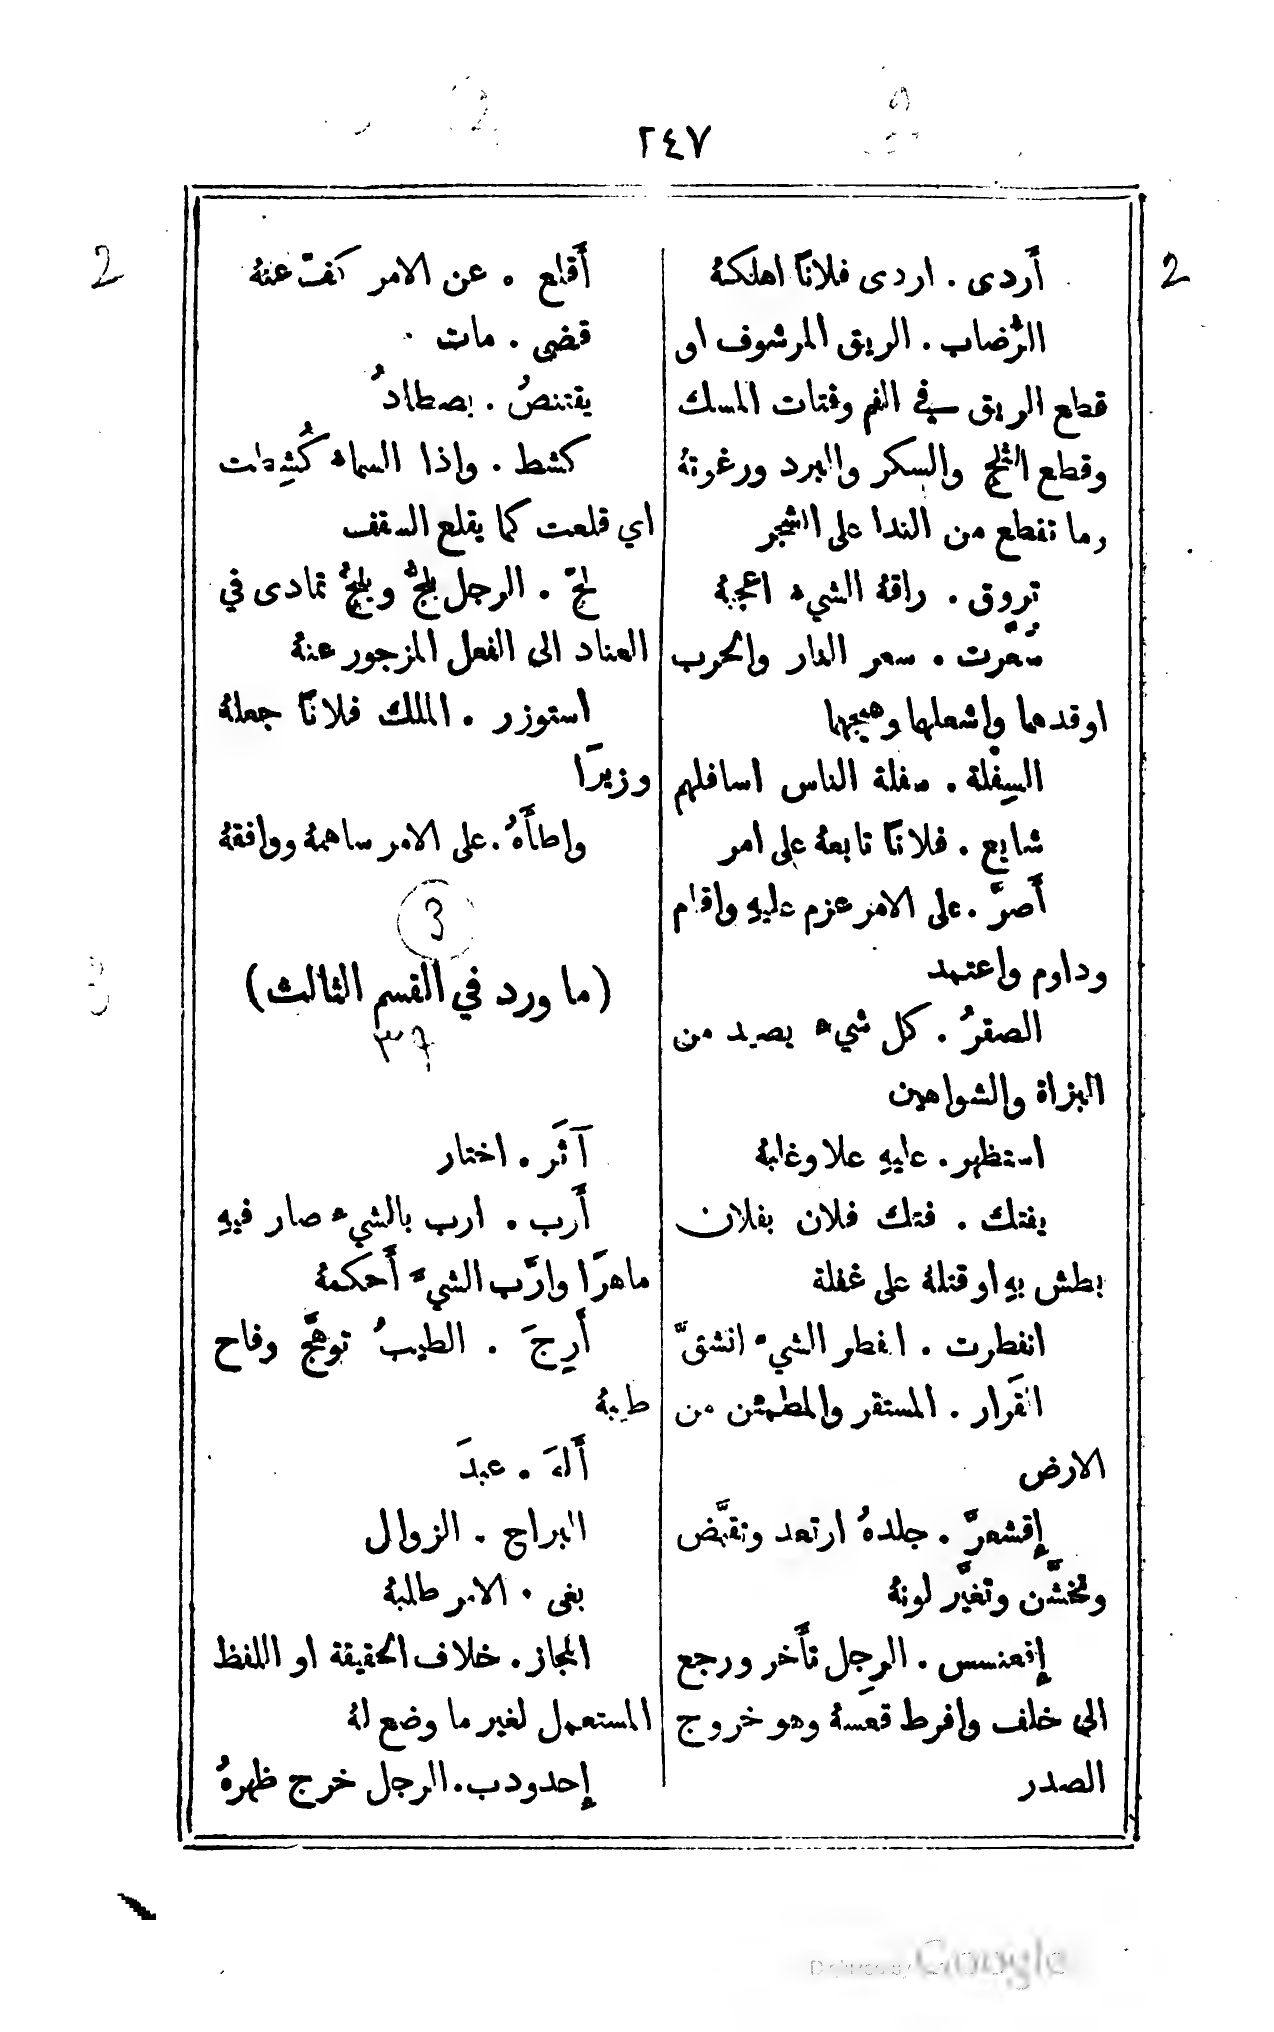 ٢٤٧
2
2
أَردى . اردى فلانًا اهلكهُ
الرُّضاب . الريق المرشوف او
قطع الريق في الفم وفتات المسك
وقطع الثلج والسكر والبرد ورغوتهُ
وما تقطع من الندا على الشجر
تروق . راقهُ الشيء اعجبهُ
سُعّرت . سعر النار والحرب
اوقدهما واشعلها وهيجها
السِفْلة . سفلة الناس اسافلهم
شايع . فلانًا تابعهُ على امر
أَصرَّ . على الامر عزم عليهِ واقام
وداوم واعتمد
الصقرُ . كل شيء يصيد من
البزاة والشواهين
استظهر . عليهِ علا وغلبهُ
يفتك . فتك فلان بفلان
بطش بهِ او قتلهُ على غفلة
انفطرت . انفطر الشيء انشقَّ
القَرار . المستقر والمطمئن من
الارض
إقشعرَّ . جلدهُ ارتعد وتقبَّض
وتخشَّن وتغيَّر لونهُ
إقعنسس . الرجل تأَخر ورجع
الى خلف وافرط قعسهُ وهو خروج
الصدر
أَقلع . عن الامر كفّ عنهُ
قضى . مات
يقتنصُ . يصطادُ
كشط . واذا السماء كُشِطت
اي قلعت كما يقلع السقف
لجّ . الرجل يلجُّ ويلجُّ تمادى في
العناد الى الفعل المزجور عنهُ
استوزر . الملك فلانًا جعلهُ
وزيرًا
واطأَهُ . على الامر ساهمهُ ووافقهُ
3
(ما ورد في القسم الثالث)
آثَر . اختار
أَرب . ارب بالشيء صار فيهِ
ماهرًا وارَّب الشيء أَحكمهُ
أَرِجَ . الطيبُ توهَّج وفاح
طيبهُ
أَلهَ . عبدَ
البراح . الزوال
بغى . الامر طلبهُ
المجاز . خلاف الحقيقة او اللفظ
المستعمل لغير ما وضع لهُ
إحدودب . الرجل خرج ظهرهُ
Digitized by Google